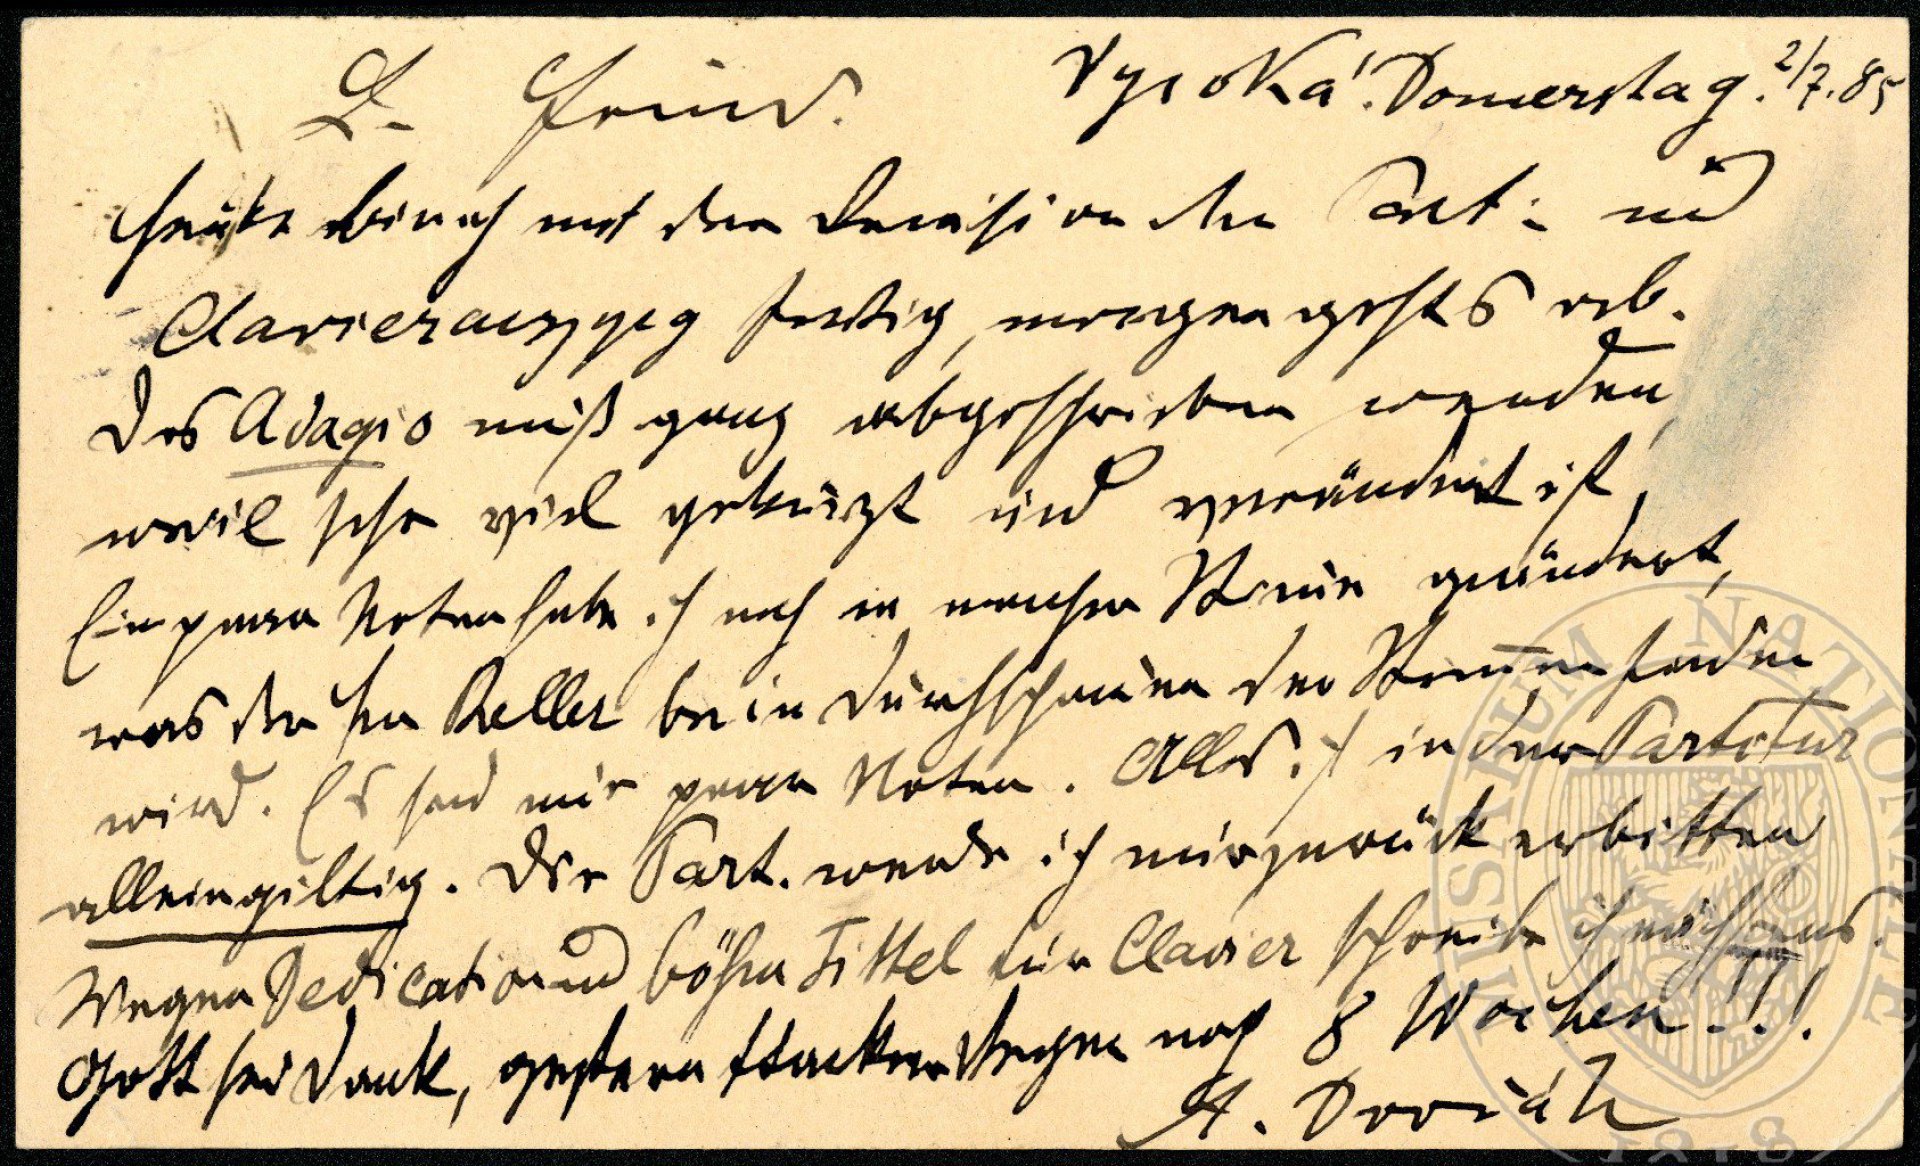 Vysoká. Donnerstag. 2/7. 85
L. Freund.
heute bin ich mit der Revision der Part: und
Clavierauszug fertig, morgen gehts ab.
Das Adagio muß ganz abgeschrieben werden,
weil sehr viel gekürzt und verändert ist,
Ein paar Noten habe ich noch in mancher Stimme geändert,
was der H Keller beim Durchschauen der Stimmen finden
wird. Es sind nur paar Noten. Alles ist in der Partitur
allein giltig. Die Part. werde ich mir zurück erbitten
Wegen Dedication und böhm Tittel für Clavier schreibe ich nächstens.
Gott sei Dank, gestern starker Regen nach 8 Wochen!!!
A. Dvořák
MUSEUM NATIONALE
1818